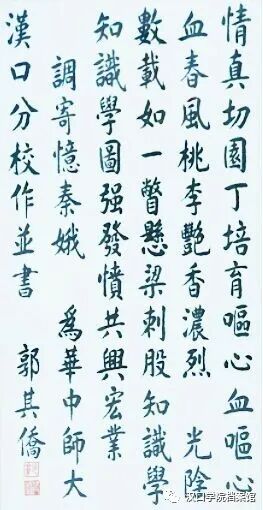 情真切園丁培育嘔心血嘔心
血春風桃李艷香濃烈 光陰
數載如一瞥懸梁刺股知識學
知識學圖强發憤共興宏業
調寄憶秦娥 爲華中師大
漢口分校作並書 郭其僑
汉口学院档案馆